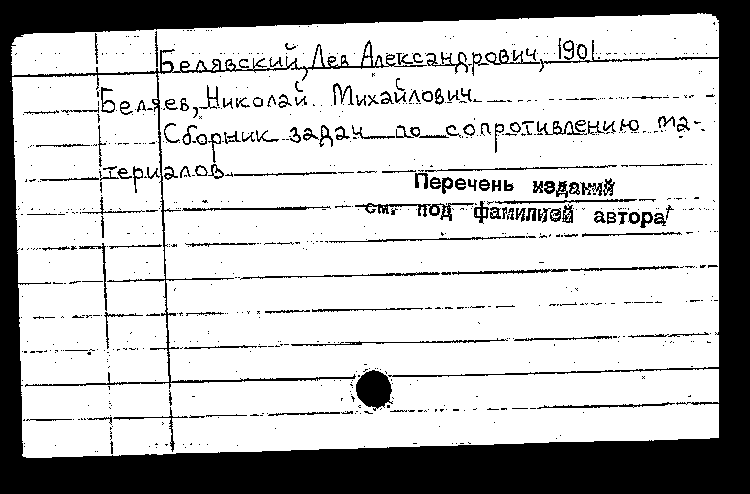 Белявский, Лев Александрович, 1901
Беляев, Николай Михайлович
Сборник задач по сопротивлению ма-
териалов
Перечень изданий
см. под фамилией автора